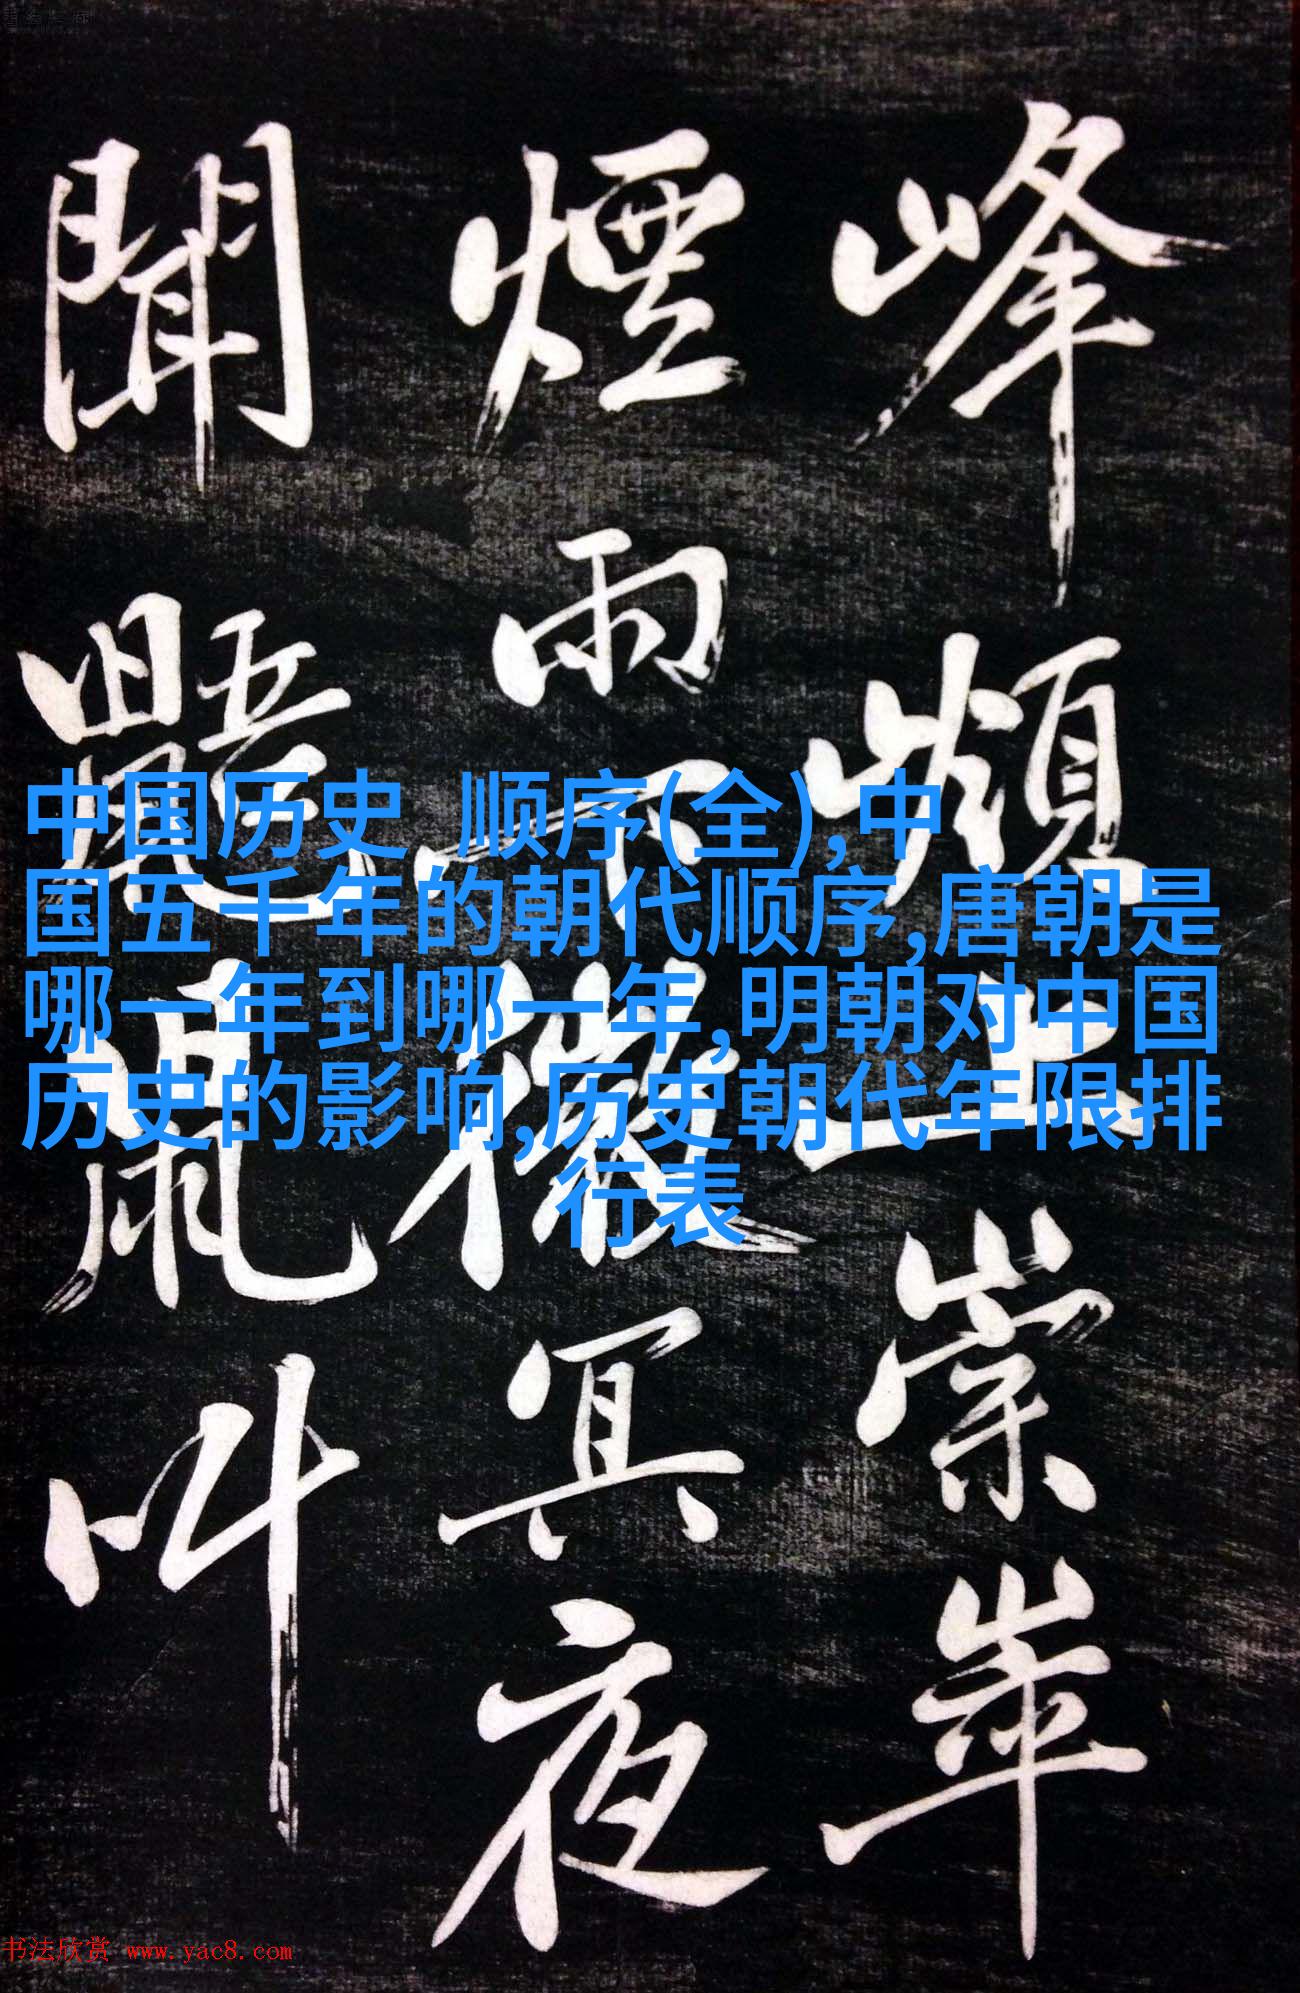 峰上崇崒
煙雨下微冥夜
聞鼯鼠叫
中国历史 顺序(全),中
国五千年的朝代顺序,唐朝是
哪一年到哪一年,明朝对中国
历史的影响,历史朝代年限排
行表
书法欣赏 www.yac8.com